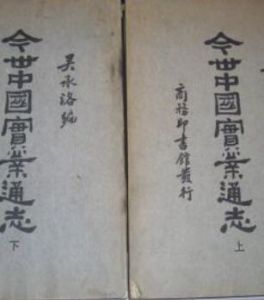 今世中國實業通志
上
商務印書館發行
吴承洛編
今世中國實業通志
下